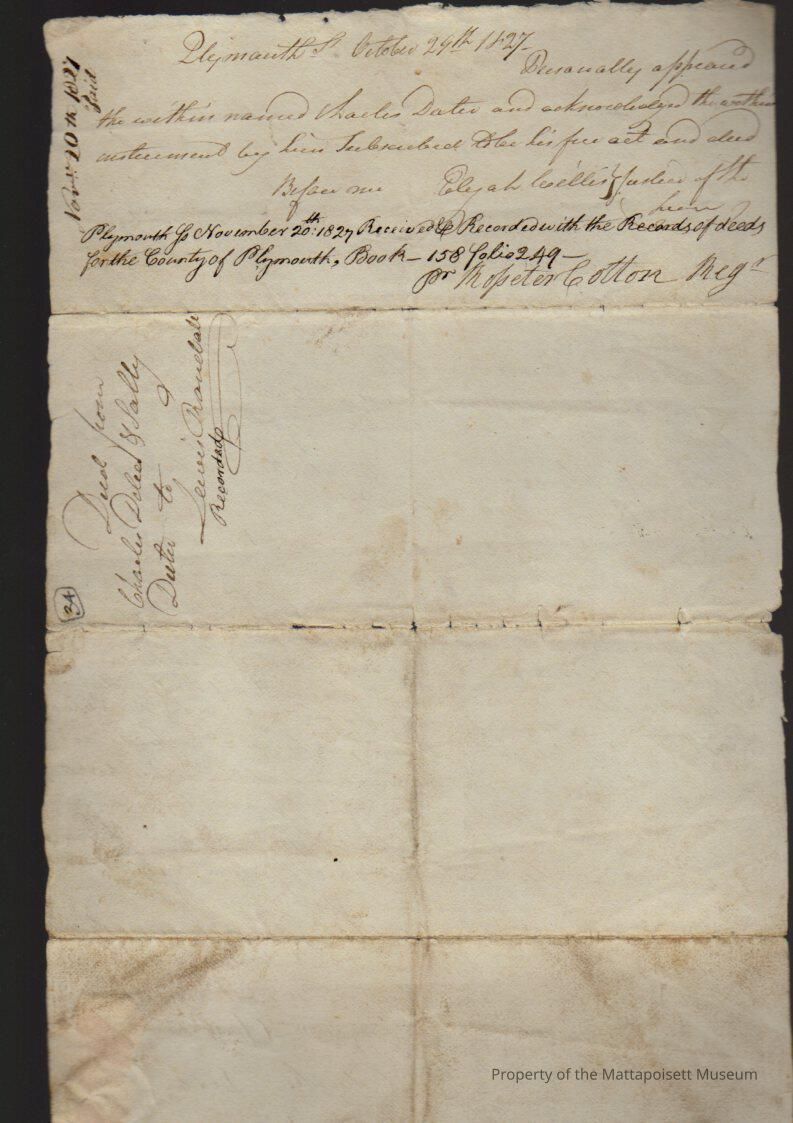 Plymouth Ss. October 29th 1827.
Personally appeared
the within named Charles Dexter and acknowledged the within
instrument by him Subscribed to be his free act and deed
Before me Elijah Willis Justice of the
peace
Plymouth Ss November 20th: 1827 Received & Recorded with the Records of deeds
for the County of Plymouth, Book - 158 folio 249 -
pr Rosseter Cotton Regr
Novr. 20th 1827
Deed from
Charles Dexter & Sally
Dexter to
Lewis Randall
Recorded
24
Property of the Mattapoisett Museum